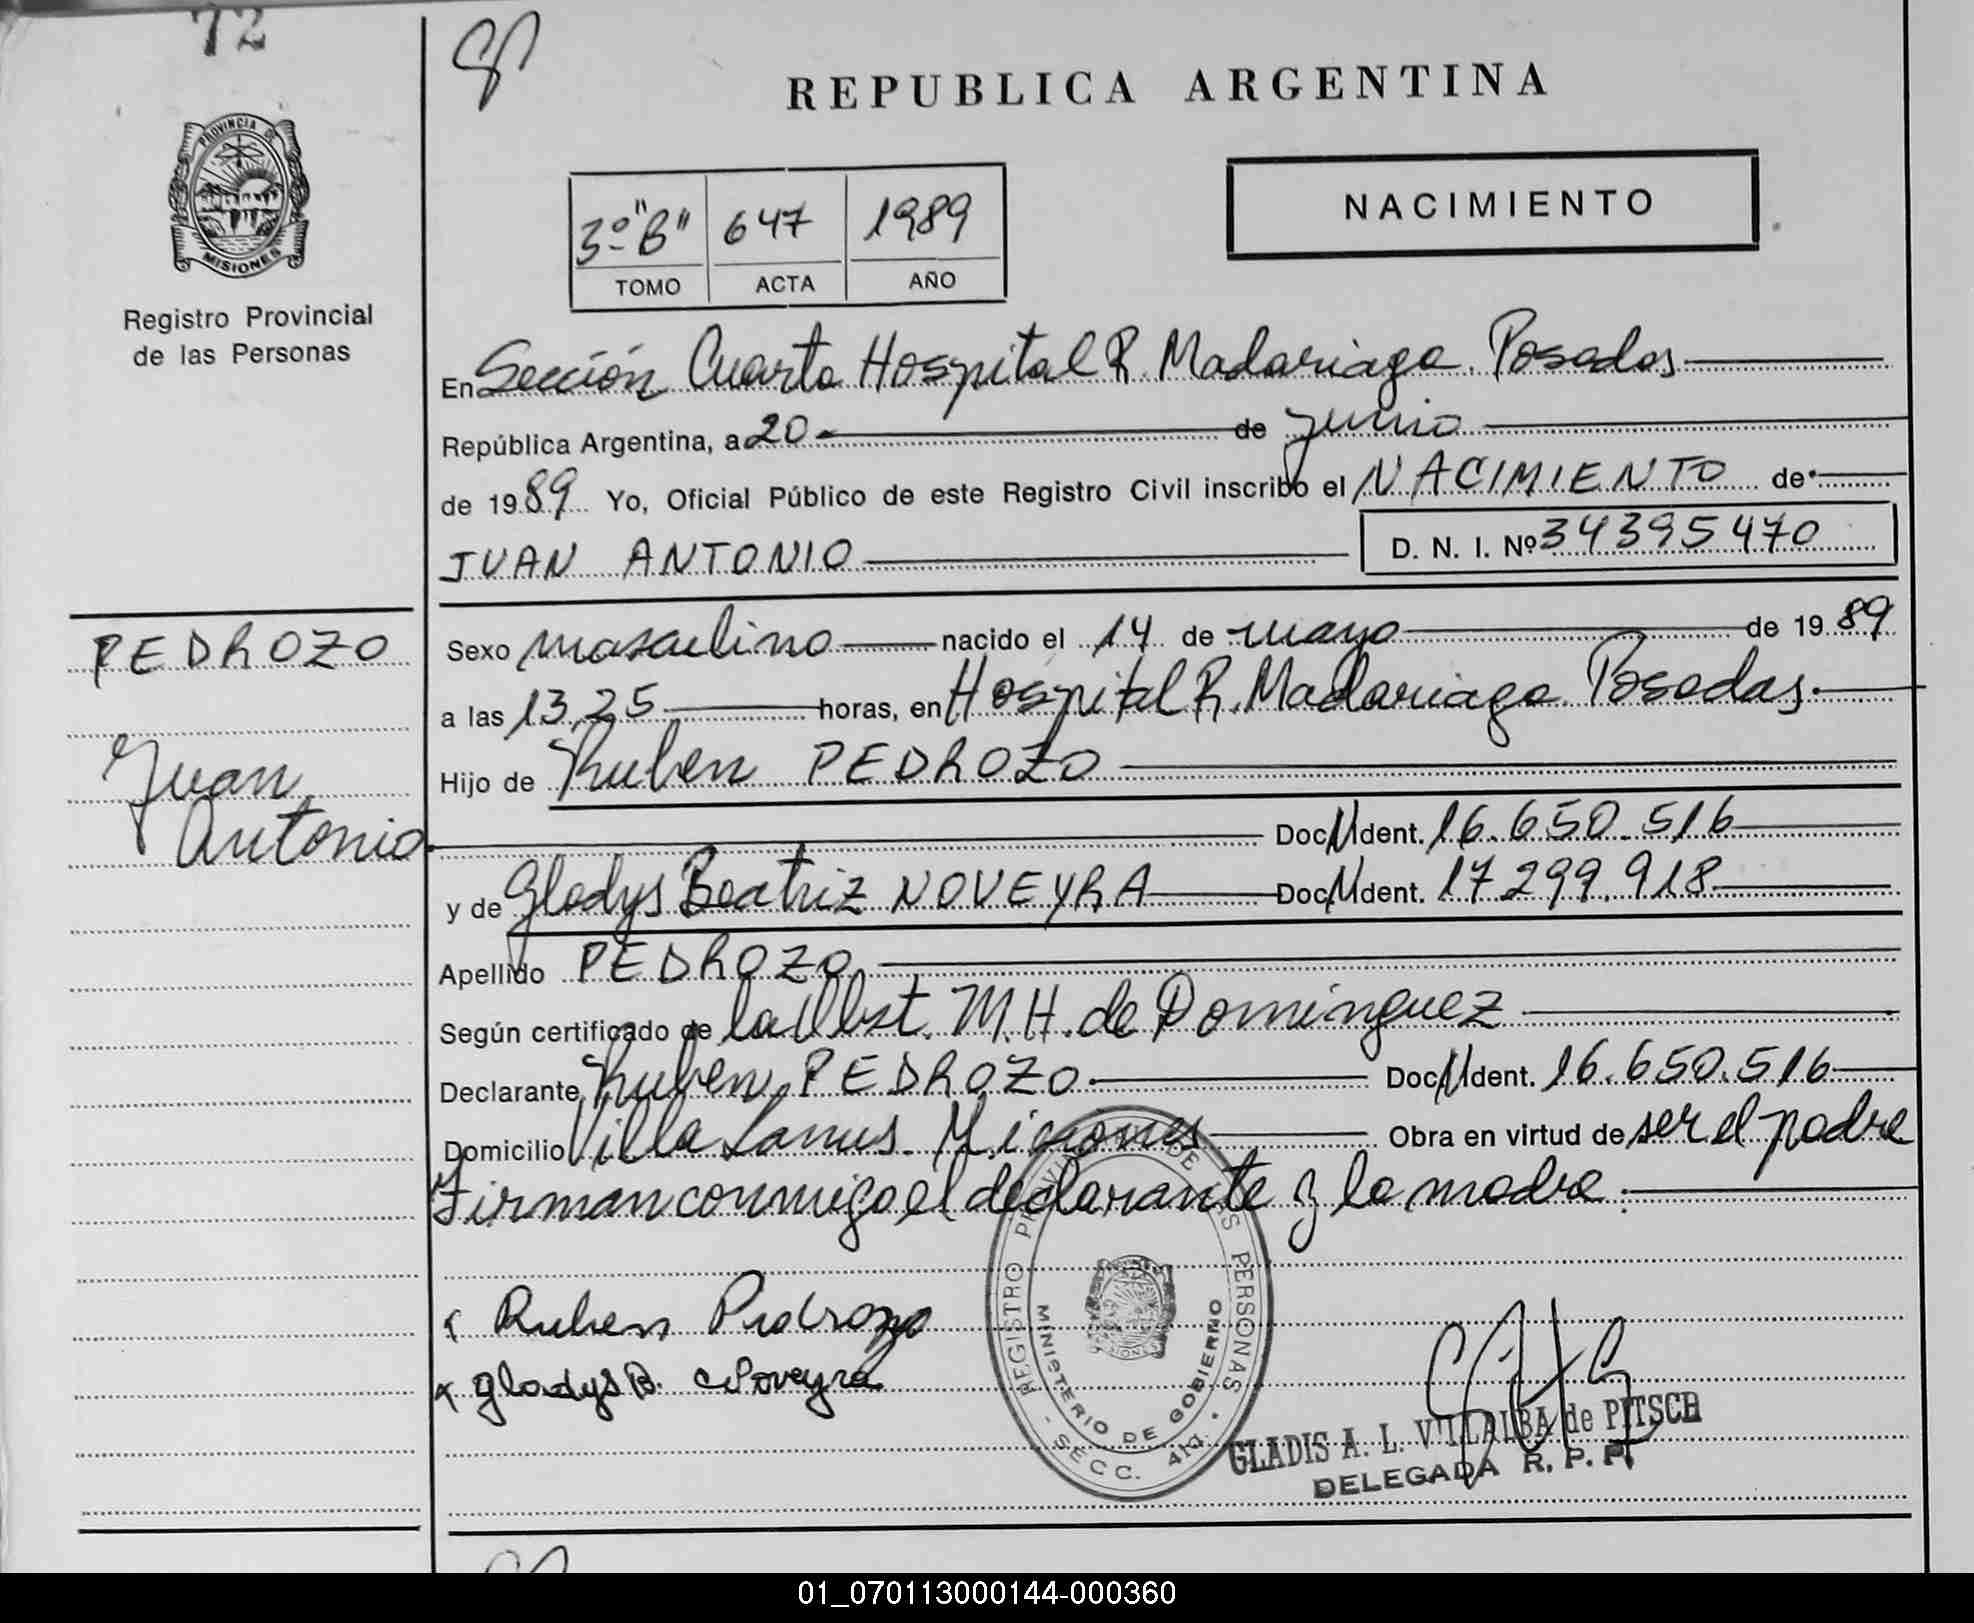 72
REPUBLICA ARGENTINA
PROVINCIA DE
MISIONES
Registro Provincial
de las Personas
3º "B" 647 1989
TOMO ACTA AÑO
NACIMIENTO
En Sección Cuarta Hospital R. Madariaga. Posadas
República Argentina, a 20 de junio
de 1989 Yo, Oficial Público de este Registro Civil inscribo el NACIMIENTO de
JUAN ANTONIO D. N. I. Nº 34395470
PEDROZO
Juan
Antonio
Sexo masculino nacido el 14 de mayo de 1989
a las 13,25 horas, en Hospital R. Madariaga. Posadas.
Hijo de Ruben PEDROZO
Doc. N Ident. 16.650.516
y de Gladys Beatriz NOVEYRA Doc. N Ident. 17.299.918
Apellido PEDROZO
Según certificado de la Obst. M.H. de Dominguez
Declarante Ruben PEDROZO Doc. N Ident. 16.650.516
Domicilio Villa Lanus. Misiones Obra en virtud de ser el padre
Firman conmigo el declarante y la madre.
Ruben Pedrozo
Gladys B. Noveyra
REGISTRO PROVINCIAL DE LAS PERSONAS
MINISTERIO DE GOBIERNO
SECC. 4ta.
GLADIS A. L. VILLALBA de PITSCH
DELEGADA R. P. P.
01_070113000144-000360